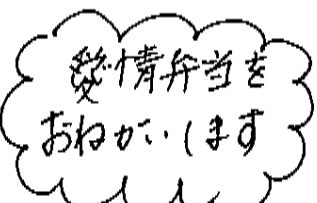 愛情弁当を
おねがいします